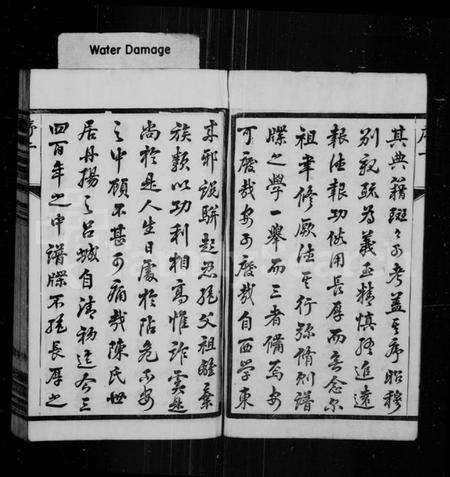 Water Damage
序一
其典籍斑斑可考蓋其序昭穆
別親疏為義至精慎終追遠
報法報功供用長厚而無念尔
祖聿修厥法其行弥脩則譜
牒之學一舉而三者備焉安
可廢哉安可廢哉自西學東
來邪說駢起忽絕父祖離棄
族類以功利相高惟詐虞是
尚於是人生日處於阽危不安
之中顧不甚可痛哉陳氏世
居丹揚之呂城自清初迄今三
四百年之中譜牒不絕長厚之
序二